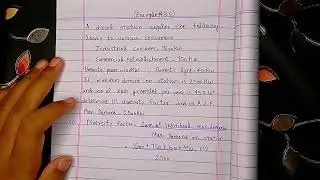 (Example #3.5)
A diesel station supplies the following
loads to various consumers
Industrial consumer = 1500kW
Commercial establishment = 750kW
Domestic power = 100kW, Domestic light = 450kW
If maximum demand on station is 2500kW
and no. of kWh generated per year is 45 x 10
determine (i) diversity factor and (ii) A.L.F.
Max Demand = 2500kW
(i) Diversity factor = Sum of individual max demands
Max Demand on station
= 1500 + 750 + 100 + 450
2500